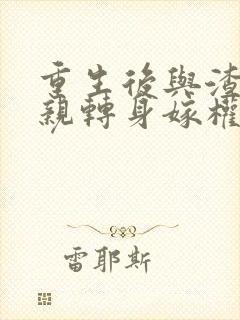 重生後與渣
親轉身嫁權
雷耶斯